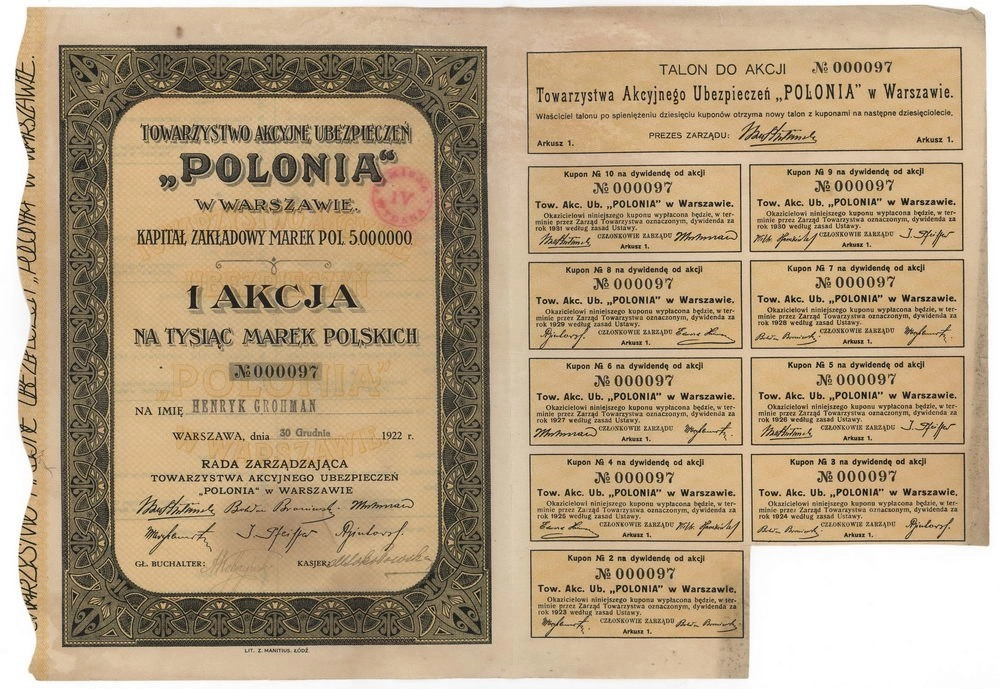 TOWARZYSTWO AKCYJNE UBEZPIECZEŃ
„POLONIA“
W WARSZAWIE.
KAPITAŁ ZAKŁADOWY MAREK POL. 5.000.000
IV
1 AKCJA
NA TYSIĄC MAREK POLSKICH
№ 000097
NA IMIĘ HENRYK GROHMAN
WARSZAWA, dnia 30 Grudnia 1922 r.
RADA ZARZĄDZAJĄCA
TOWARZYSTWA AKCYJNEGO UBEZPIECZEŃ
„POLONIA“ W WARSZAWIE
GŁ. BUCHALTER: KASJER:
LIT. Z. MANITIUS. ŁÓDŹ
TALON DO AKCJI № 000097
Towarzystwa Akcyjnego Ubezpieczeń „POLONIA“ w Warszawie.
Właściciel talonu po spieniężeniu dziesięciu kuponów otrzyma nowy talon z kuponami na następne dziesięciolecie.
PREZES ZARZĄDU:
Arkusz 1. Arkusz 1.
Kupon № 10 na dywidendę od akcji
№ 000097
Tow. Akc. Ub. „POLONIA“ w Warszawie.
Okazicielowi niniejszego kuponu wypłacona będzie, w ter-
minie przez Zarząd Towarzystwa oznaczonym, dywidenda za
rok 1931 według zasad Ustawy.
CZŁONKOWIE ZARZĄDU
Arkusz 1.
Kupon № 9 na dywidendę od akcji
№ 000097
Tow. Akc. Ub. „POLONIA“ w Warszawie.
Okazicielowi niniejszego kuponu wypłacona będzie, w ter-
minie przez Zarząd Towarzystwa oznaczonym, dywidenda za
rok 1930 według zasad Ustawy.
CZŁONKOWIE ZARZĄDU
Arkusz 1.
Kupon № 8 na dywidendę od akcji
№ 000097
Tow. Akc. Ub. „POLONIA“ w Warszawie.
Okazicielowi niniejszego kuponu wypłacona będzie, w ter-
minie przez Zarząd Towarzystwa oznaczonym, dywidenda za
rok 1929 według zasad Ustawy.
CZŁONKOWIE ZARZĄDU
Arkusz 1.
Kupon № 7 na dywidendę od akcji
№ 000097
Tow. Akc. Ub. „POLONIA“ w Warszawie.
Okazicielowi niniejszego kuponu wypłacona będzie, w ter-
minie przez Zarząd Towarzystwa oznaczonym, dywidenda za
rok 1928 według zasad Ustawy.
CZŁONKOWIE ZARZĄDU
Arkusz 1.
Kupon № 6 na dywidendę od akcji
№ 000097
Tow. Akc. Ub. „POLONIA“ w Warszawie.
Okazicielowi niniejszego kuponu wypłacona będzie, w ter-
minie przez Zarząd Towarzystwa oznaczonym, dywidenda za
rok 1927 według zasad Ustawy.
CZŁONKOWIE ZARZĄDU
Arkusz 1.
Kupon № 5 na dywidendę od akcji
№ 000097
Tow. Akc. Ub. „POLONIA“ w Warszawie.
Okazicielowi niniejszego kuponu wypłacona będzie, w ter-
minie przez Zarząd Towarzystwa oznaczonym, dywidenda za
rok 1926 według zasad Ustawy.
CZŁONKOWIE ZARZĄDU
Arkusz 1.
Kupon № 4 na dywidendę od akcji
№ 000097
Tow. Akc. Ub. „POLONIA“ w Warszawie.
Okazicielowi niniejszego kuponu wypłacona będzie, w ter-
minie przez Zarząd Towarzystwa oznaczonym, dywidenda za
rok 1925 według zasad Ustawy.
CZŁONKOWIE ZARZĄDU
Arkusz 1.
Kupon № 3 na dywidendę od akcji
№ 000097
Tow. Akc. Ub. „POLONIA“ w Warszawie.
Okazicielowi niniejszego kuponu wypłacona będzie, w ter-
minie przez Zarząd Towarzystwa oznaczonym, dywidenda za
rok 1924 według zasad Ustawy.
CZŁONKOWIE ZARZĄDU
Arkusz 1.
Kupon № 2 na dywidendę od akcji
№ 000097
Tow. Akc. Ub. „POLONIA“ w Warszawie.
Okazicielowi niniejszego kuponu wypłacona będzie, w ter-
minie przez Zarząd Towarzystwa oznaczonym, dywidenda za
rok 1923 według zasad Ustawy.
CZŁONKOWIE ZARZĄDU
Arkusz 1.